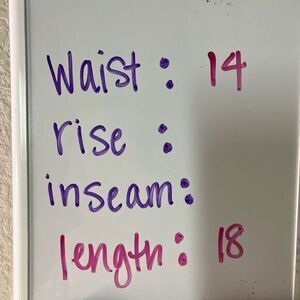 Waist: 14
rise :
inseam:
length: 18